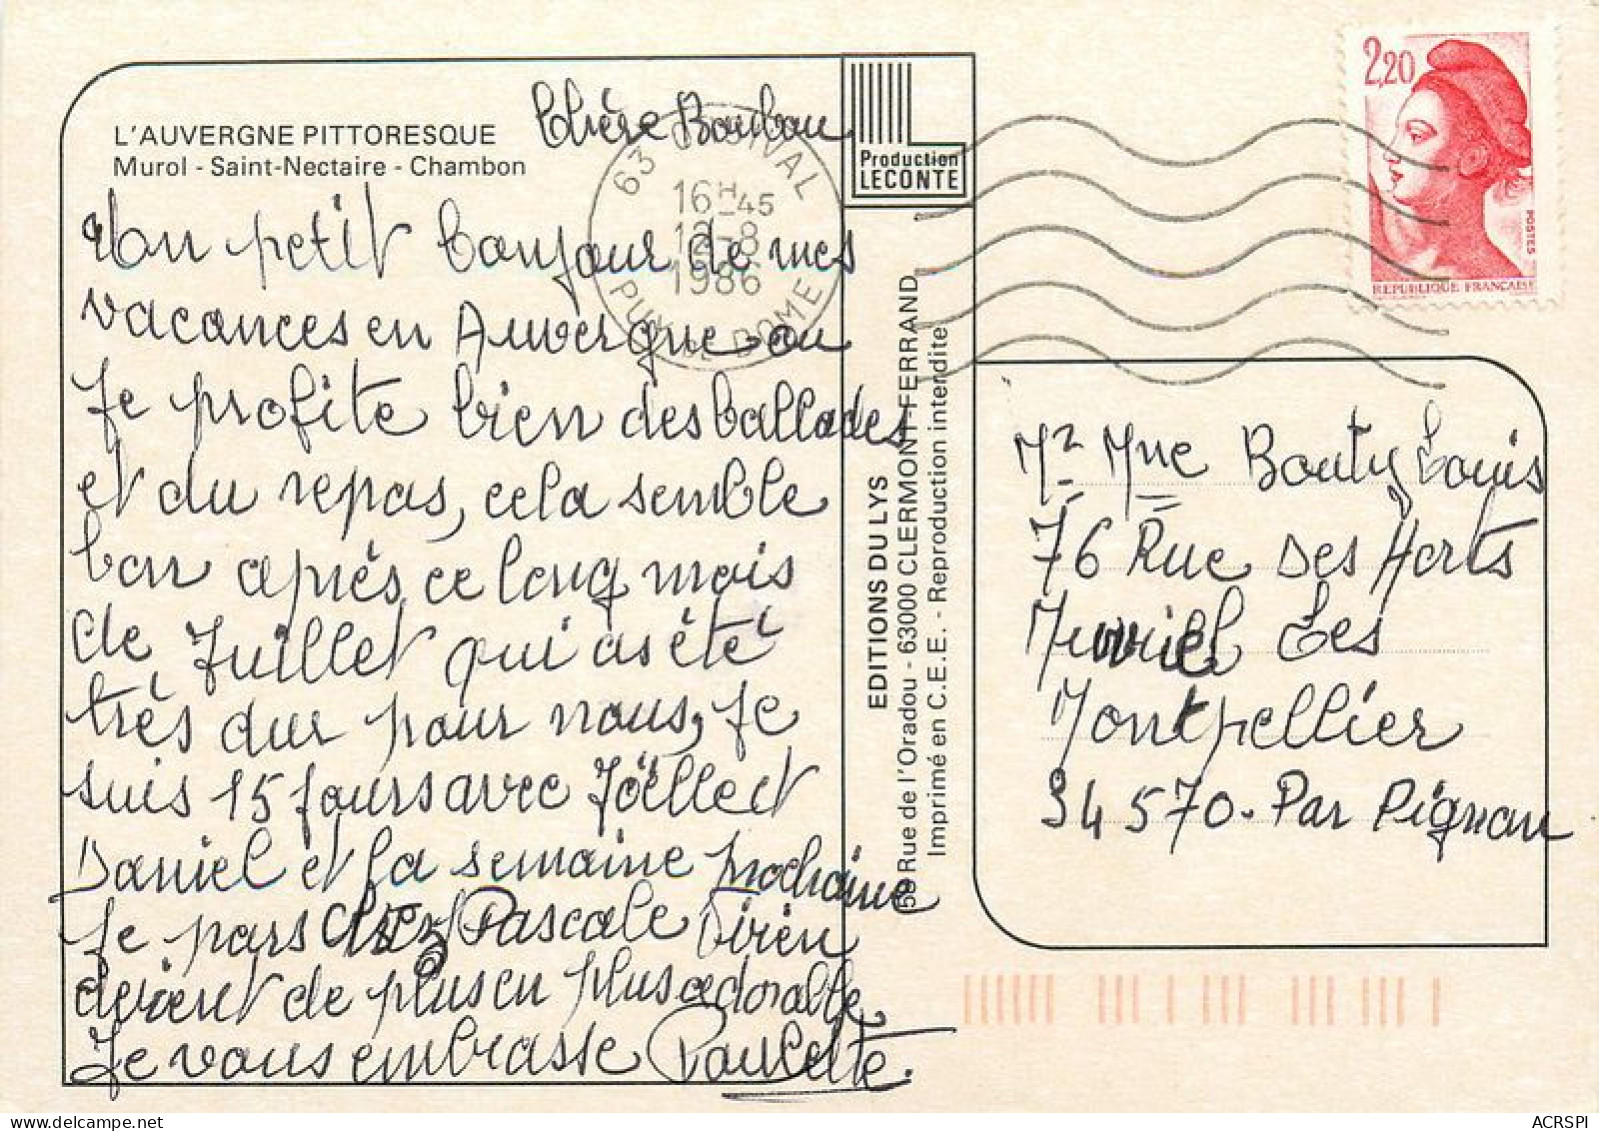 L'AUVERGNE PITTORESQUE
Murol - Saint-Nectaire - Chambon
Chère Boubou
Un petit bonjour de mes
vacances en Auvergne ou
Je profite bien des ballades
et du repas, cela semble
bon après ce long mois
de Juillet qui as été
très dur pour nous, Je
suis 15 jours avec Joëlle et
Daniel et la semaine prochaine
Je pars chez Pascale
devient de plus en plus adorable
Je vous embrasse Paulette
63
16H-45
12-8
1986
PUY DE DOME
Production
LECONTE
EDITIONS DU LYS
Rue de l'Oradou - 63000 CLERMONT-FERRAND
Imprimé en C.E.E. - Reproduction interdite
2,20
POSTES
REPUBLIQUE FRANCAISE
Mr Mme Bouty Louis
76 Rue des Horts
Murviel Les
Montpellier
34570. Par Pignan
ACRSPI